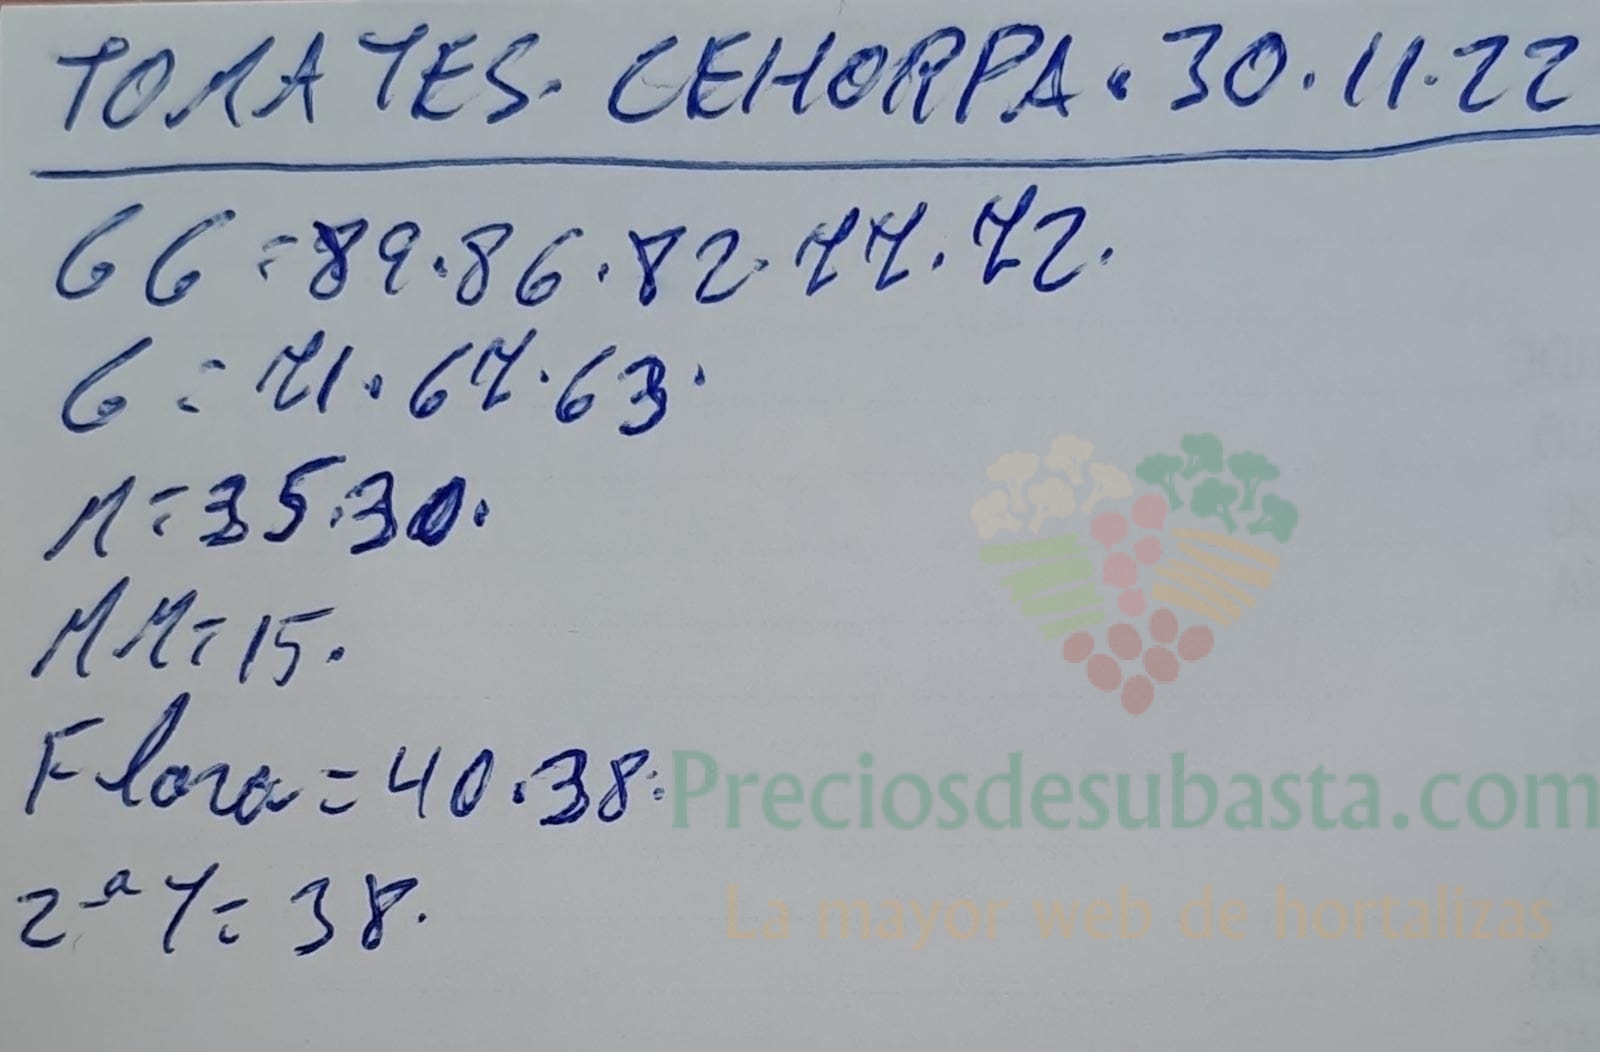 TOMATES. CEHORPA. 30.11.22
GG = 89.86.82.77.72.
G = 71.67.63.
M = 35.30.
MM = 15.
Flora = 40.38.
2ª 7 = 38.
Preciosdesubasta.com
La mayor web de hortalizas